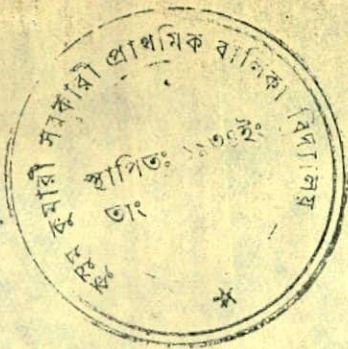 কুসুম কুমারী সরকারী প্রাথমিক বালিকা বিদ্যালয়
স্থাপিতঃ ১৯৩৫ইং
তাং